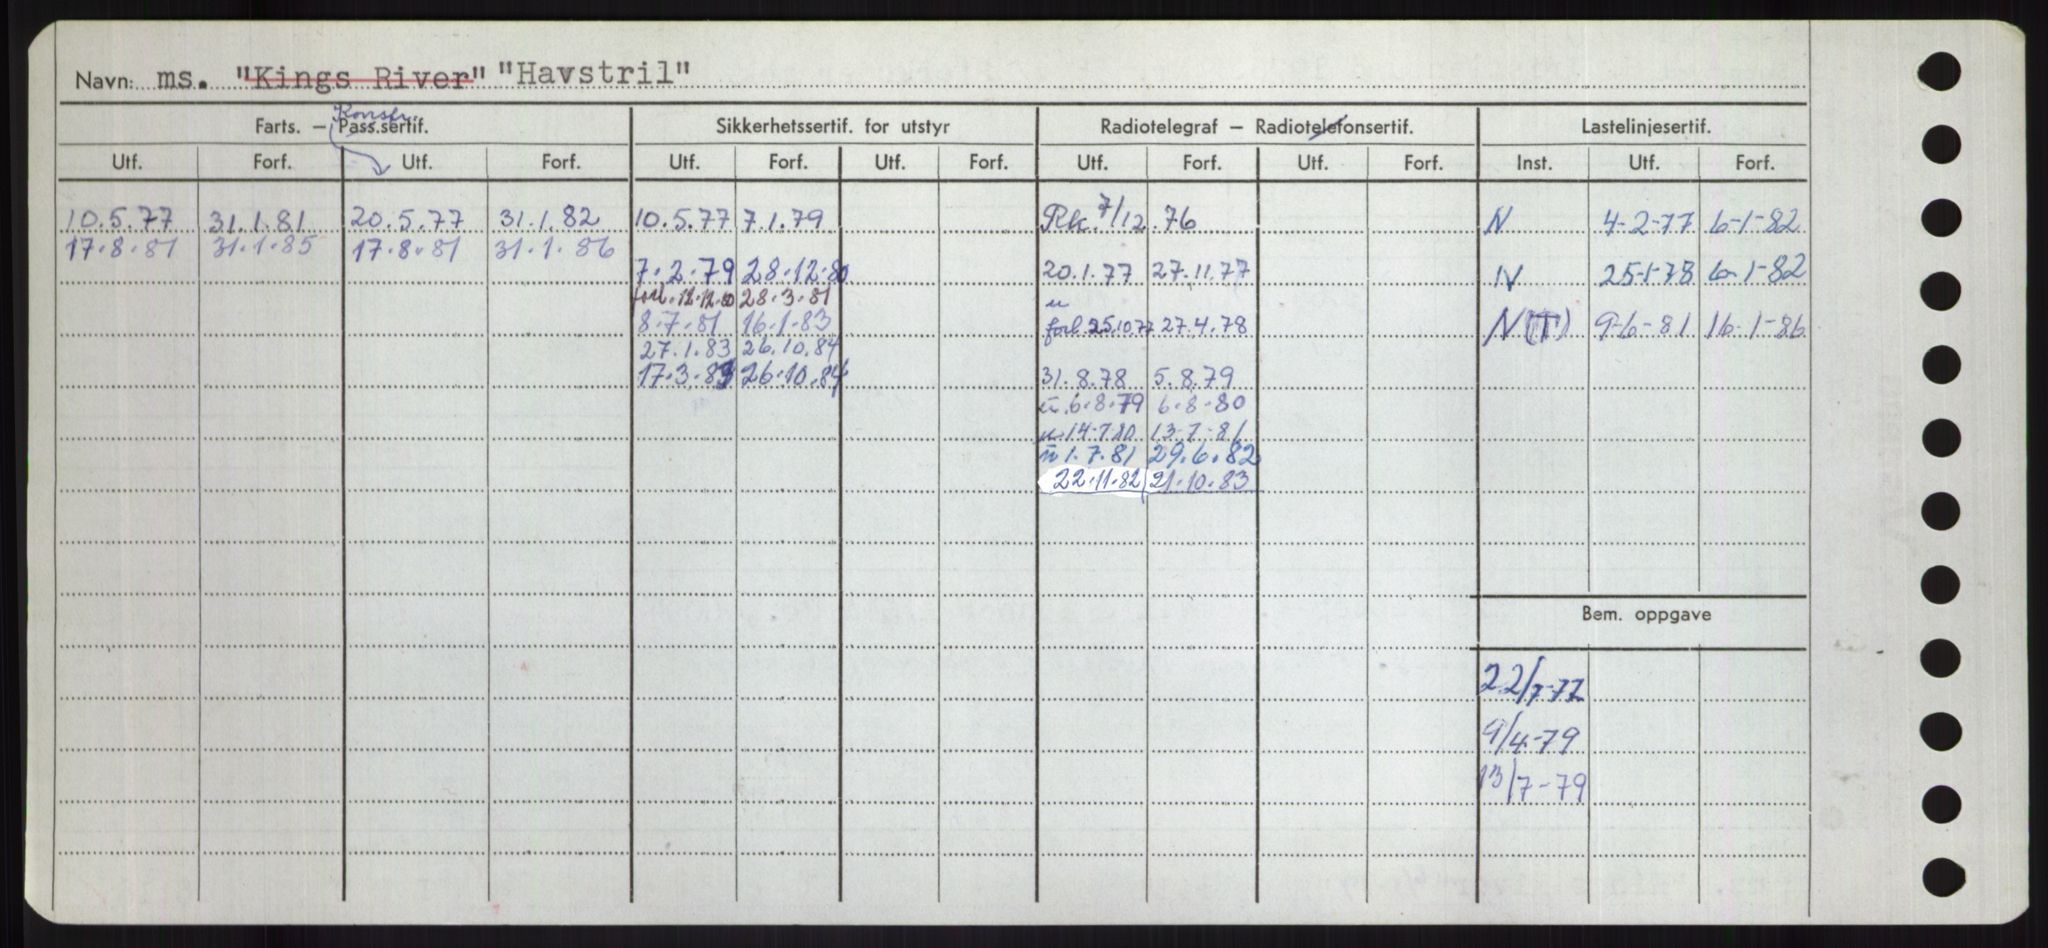 Navn: ms. "Kings River" "Havstril"
Konstr.
Farts. — Pass.sertif. Sikkerhetssertif. for utstyr Radiotelegraf — Radiotelefonsertif. Lastelinjesertif.
Utf. Forf. Utf. Forf. Utf. Forf. Utf. Forf. Utf. Forf. Utf. Forf. Inst. Utf. Forf.
10.5.77 31.1.81 20.5.77 31.1.82 10.5.77 7.1.79 Rk. 7/12.76 N 4-2-77 6-1-82
17.8.81 31.1.85 17.8.81 31.1.86
7.2.79 28.12.80 20.1.77 27.11.77 N 25-1-78 6-1-82
forl. 12.12.80 28.3.81 u
8.7.81 16.1.83 forl 25.10.77 27.4.78 N(T) 9-6-81 16-1-86
27.1.83 26.10.84
17.3.83 26.10.84 31.8.78 5.8.79
u 6.8.79 6-8-80
u 14-7-80 13-7-81
u 1.7.81 29.6.82
22.11.82 21.10.83
Bem. oppgave
22/7-77
9/4-79
13/7-79